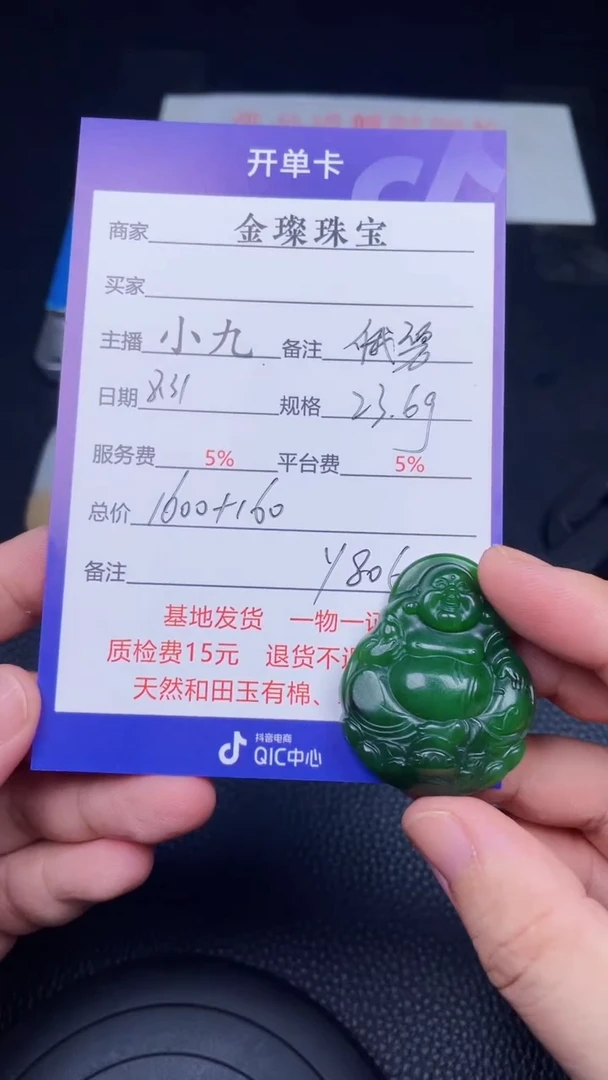 开单卡
商家 金璨珠宝
买家
主播 小九 备注 俄碧
日期 8.31 规格 23.6g
服务费 5% 平台费 5%
总价 1600+160
备注 Y806
基地发货 一物一证
质检费15元 退货不退
天然和田玉有棉、
抖音电商
QIC中心